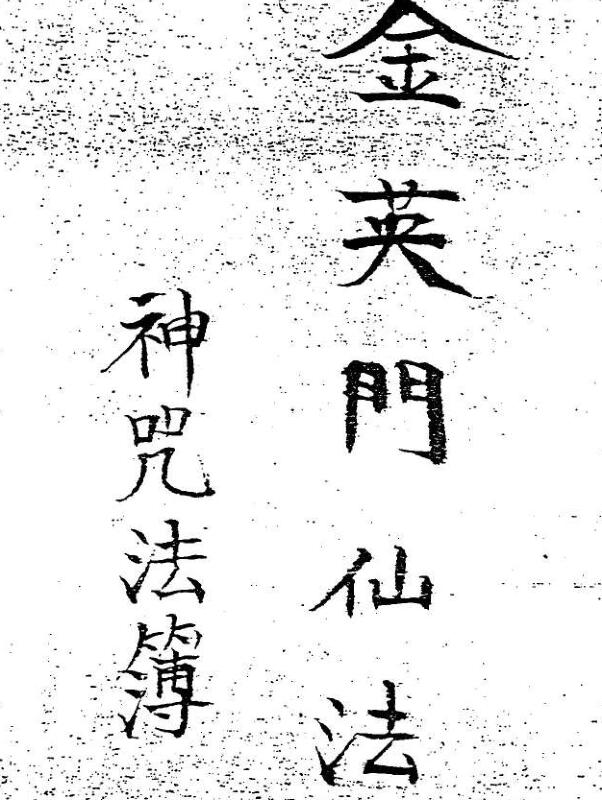 金英門仙法
神咒法簿